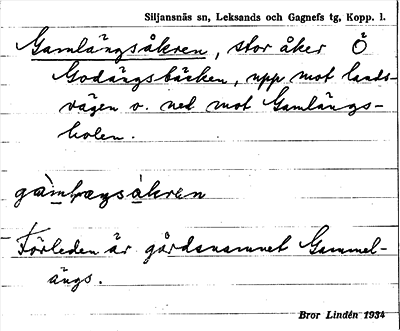 Siljansnäs sn, Leksands och Gagnefs tg, Kopp. l.
Gamlängsåkren, stor åker Ö
Godängsbäcken, upp mot lands-
vägen o. ned mot Gamlängs-
holen.
Förleden är gårdsnamnet Gammel-
ängs.
Bror Lindén 1934